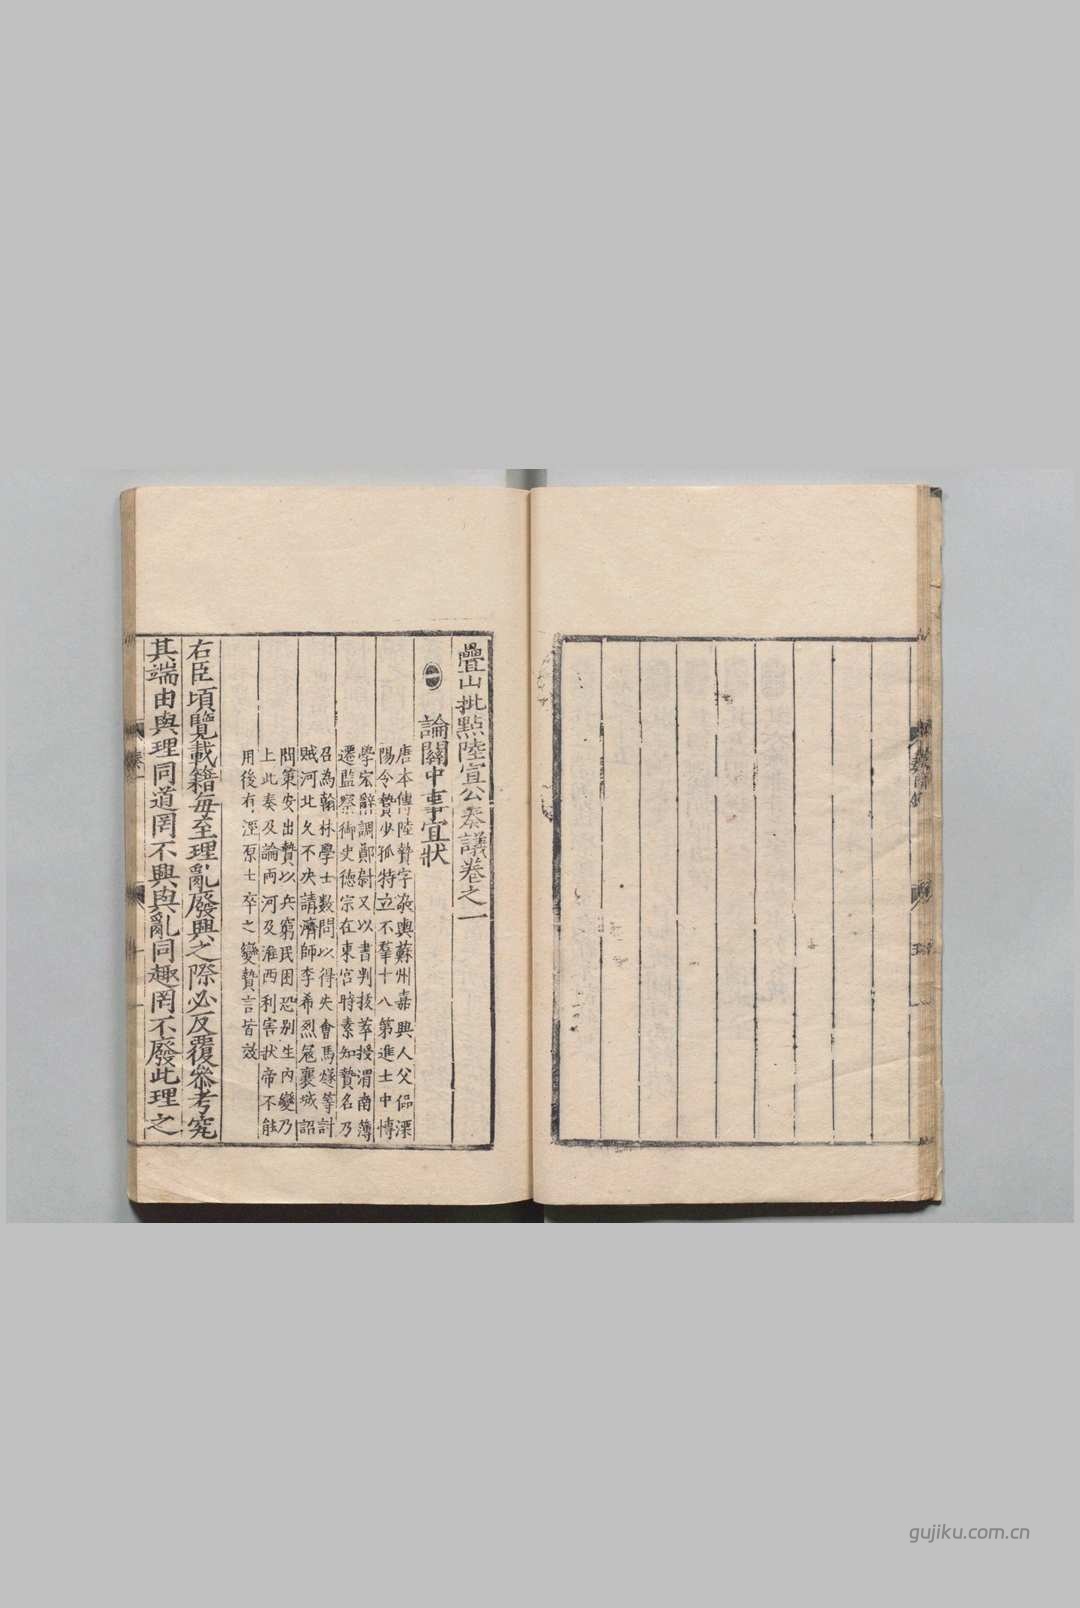 疊山批點陸宣公奏議卷之一
一
論關中事宜狀
唐本傳陸贄字敬輿蘇州嘉興人父偘溧
陽令贄少孤特立不羣十八第進士中博
學宏辭調鄭尉又以書判拔萃授渭南薄
遷監察御史德宗在東宮時素知贄名乃
召為翰林學士數問以得失會馬燧等討
賊河北久不决請濟師李希烈冦襄城詔
問策安出贄以兵窮民困恐别生内變乃
上此奏及論兩河及淮西利害狀帝不能
用後有涇原士卒之變贄言皆效
右臣頃覽載籍每至理亂廢興之際必反覆叅考究
其端由與理同道罔不興與亂同趣罔不廢此理之
gujiku.com.cn